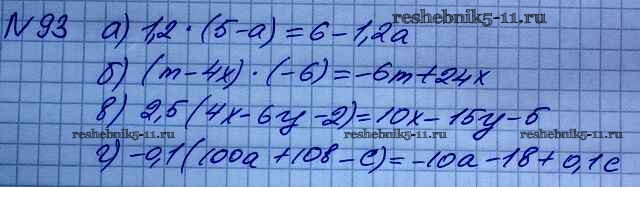 № 93 а) 1,2 · (5-а) = 6 - 1,2а
reshebnik5-11.ru
б) (m - 4x) · (-6) = -6m + 24x
в) 2,5 (4x - 6y - 2) = 10x - 15y - 5
reshebnik5-11.ru reshebnik5-11.ru reshebnik5-11.ru
г) -0,1 (100а + 10в - с) = -10а - 1в + 0,1с